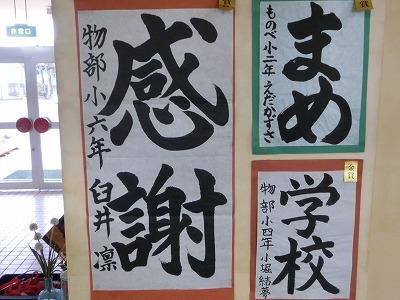 非常口
感謝
物部小六年 臼井凛
賞
まめ
ものべ小二年 えだかずさ
賞
学校
物部小四年 小堀結夢
金賞